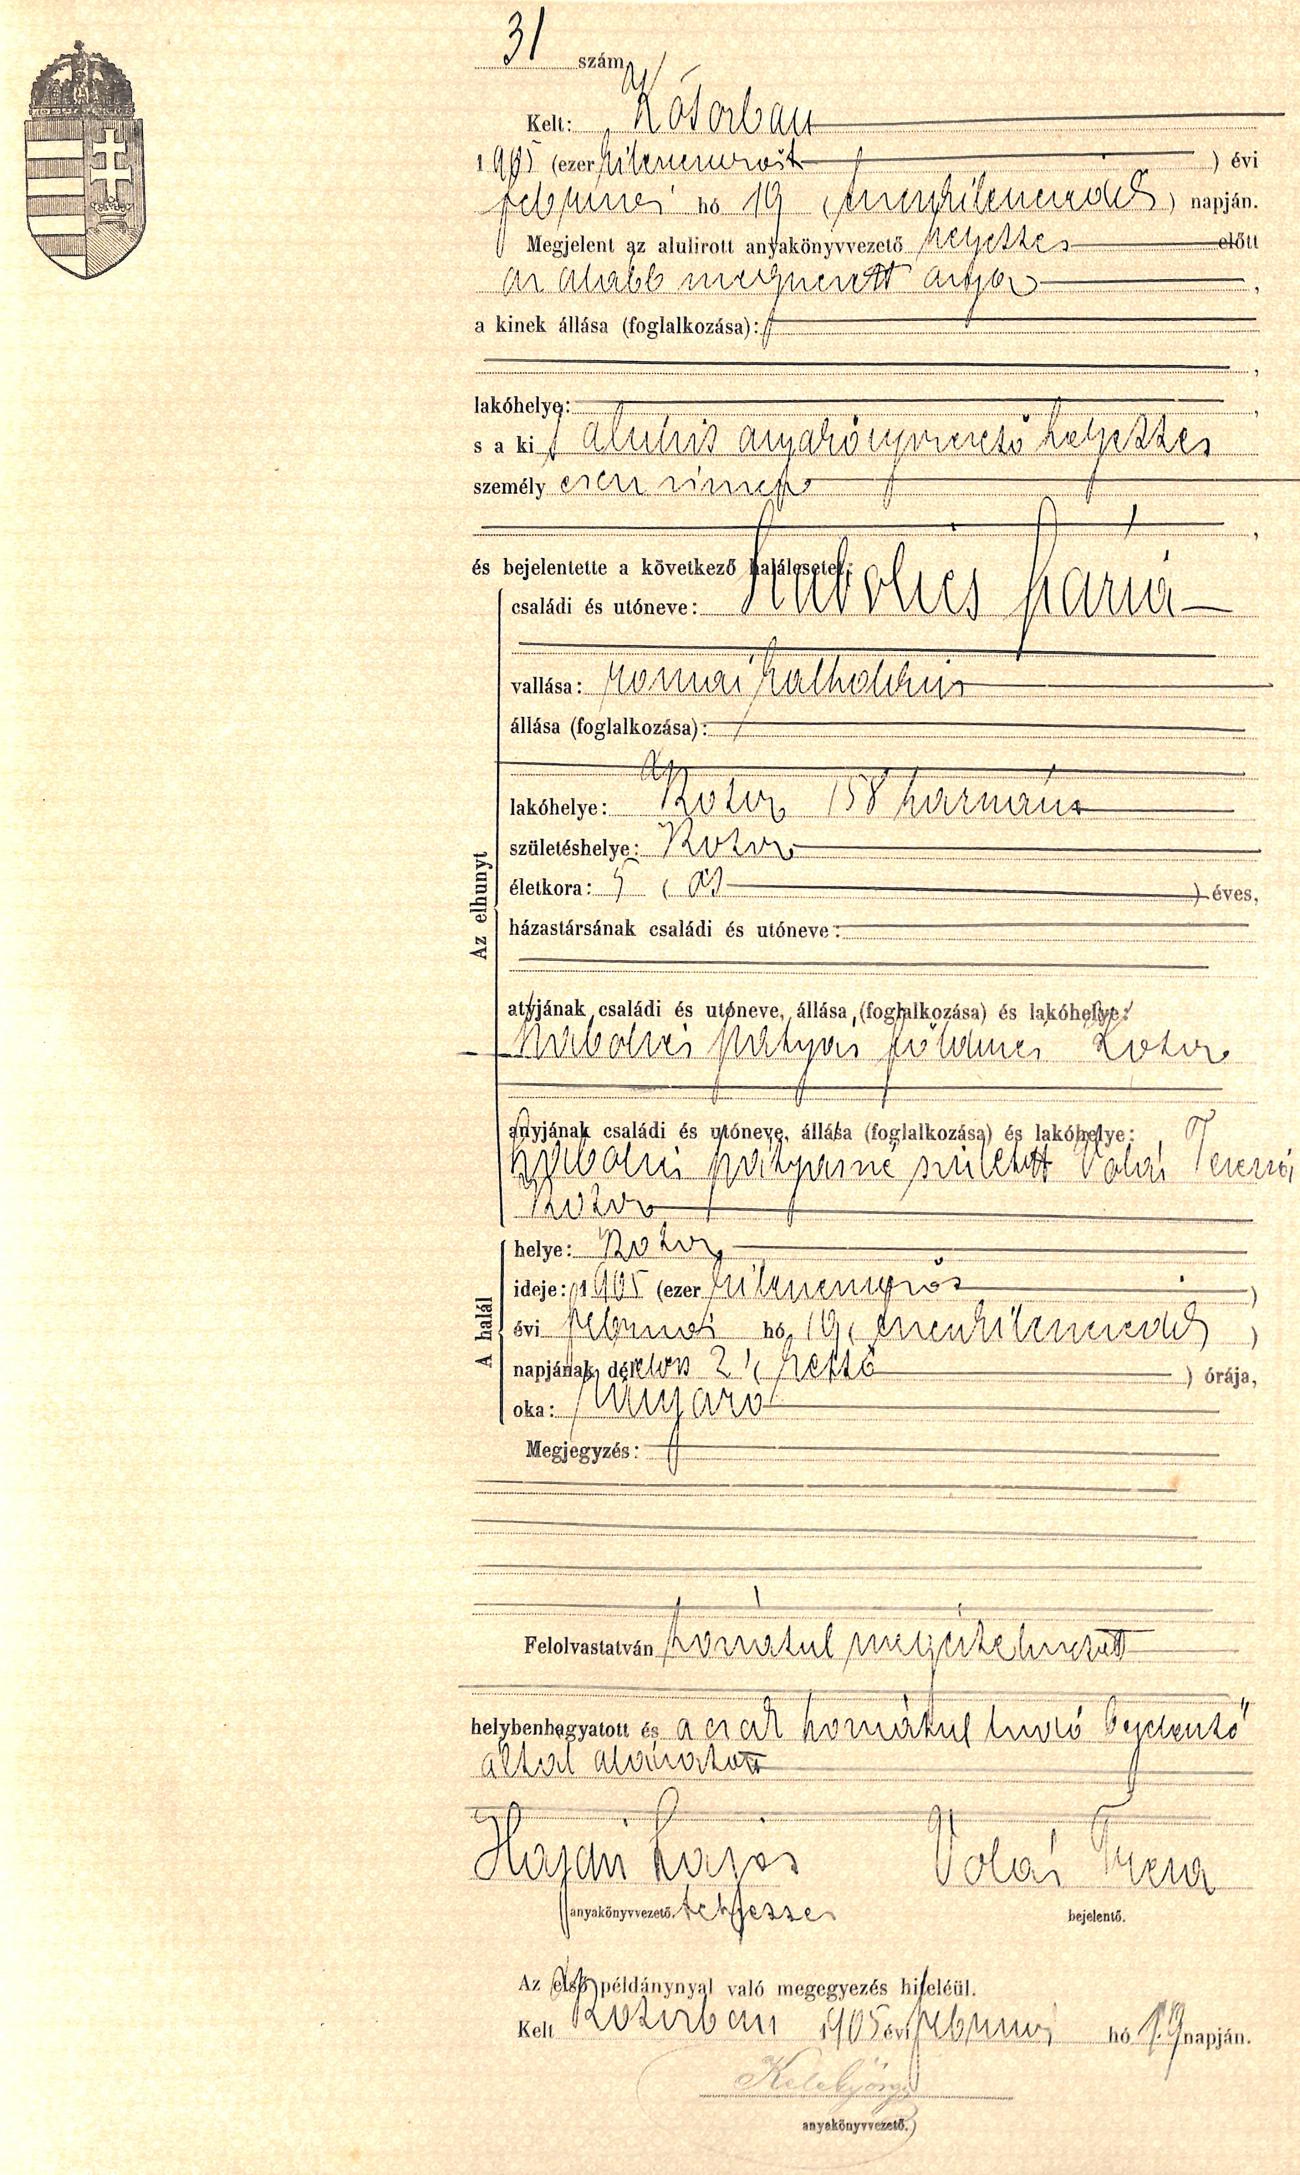 31 szám
Kelt: Kótorban
1905 (ezer kilencszázöt) évi
február hó 19 (tizenkilencedik) napján.
Megjelent az alulirott anyakönyvvezető helyettes előtt
az alább megnevezett anya,
a kinek állása (foglalkozása):
lakóhelye:
s a ki alulirt anyakönyvvezető helyettes
személyesen ismer
és bejelentette a következő halálesetet:
családi és utóneve: Szabolics Mária
vallása: római katholikus
állása (foglalkozása):
lakóhelye: Kotor 158 házszám
születéshelye: Kotor
életkora: 5 (öt) éves,
házastársának családi és utóneve:
atyjának családi és utóneve, állása (foglalkozása) és lakóhelye:
Mátyás földmives Kotor
anyjának családi és utóneve, állása (foglalkozása) és lakóhelye:
Mátyásné született Terézia
Kotor
Az elhunyt
helye: Kotor
ideje: 1905 (ezer kilencszázöt)
évi február hó 19 (tizenkilencedik)
napjának délelőtt 2 (kettő) órája,
oka:
A halál
Megjegyzés:
Felolvastatván horvátul megértelmeztetett
helybenhagyatott és a csak horvátul tudó bejelentő
által aláíratott
Hajdu Lajos
anyakönyvvezető. helyettes bejelentő.
Az első példánynyal való megegyezés hiteléül.
Kelt Kotorban 1905 évi február hó 19 napján.
anyakönyvvezető.